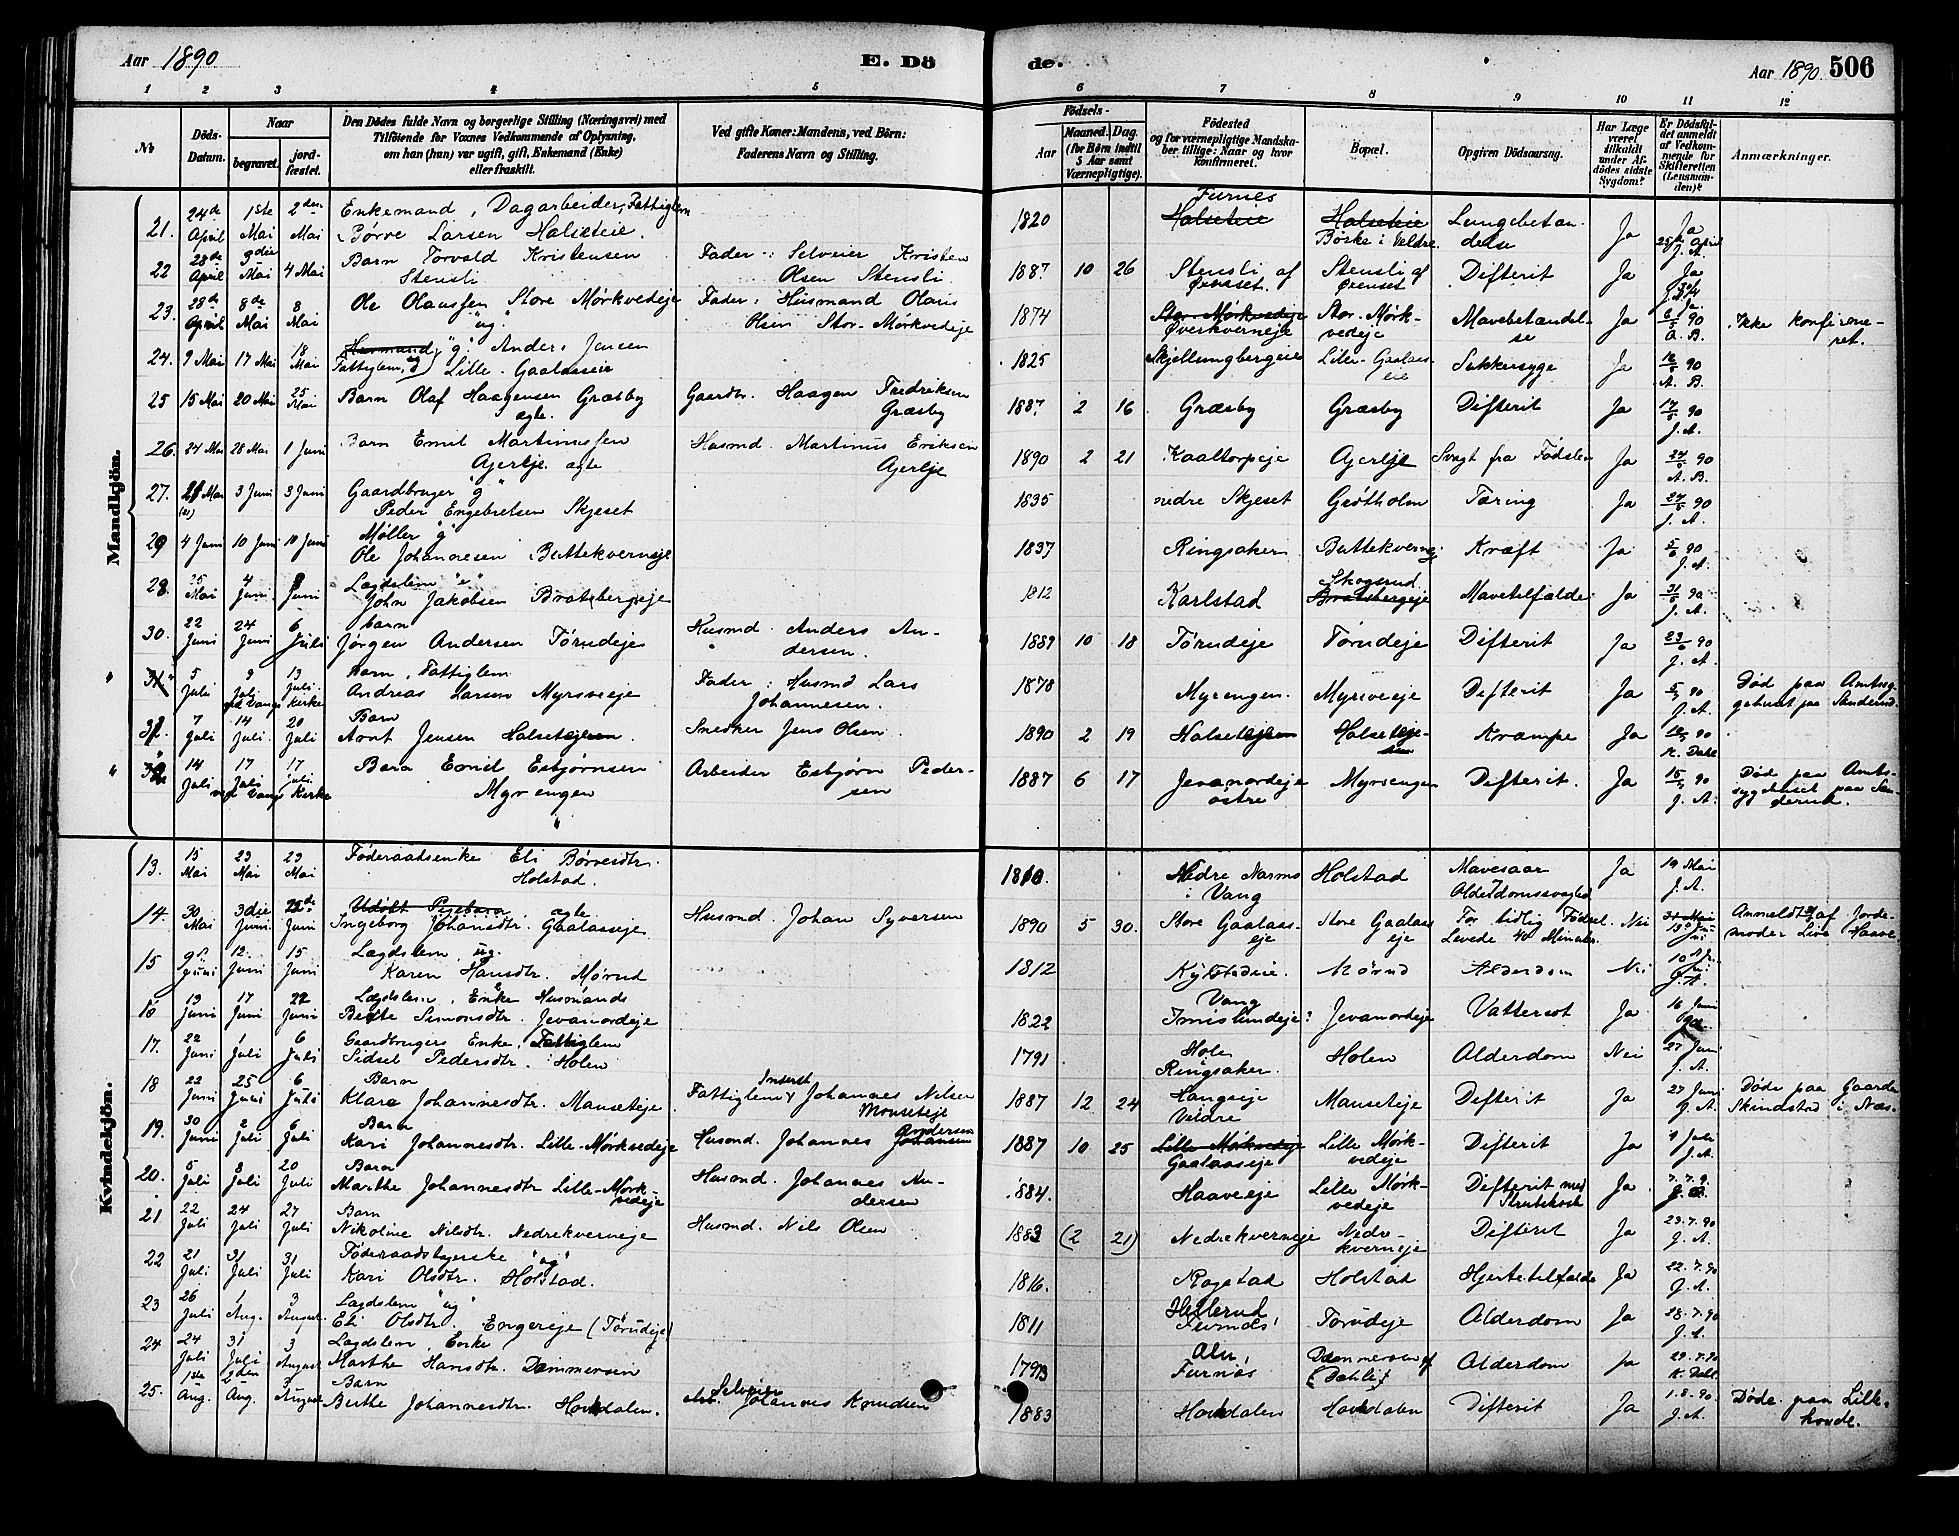 Aar 1890
E. Dö
de.
Aar 1890 506
1 2 3 4 5 6 7 8 9 10 11 12
No
Döds-Datum.
Naar
begravet.
jordfæstet.
Den Dödes fulde Navn og borgerlige Stilling (Næringsvei) med
Tilföiende for Voxnes Vedkommende af Oplysning,
om han (hun) var ugift, gift, Enkemand (Enke)
eller fraskilt.
Ved gifte Koner: Mandens, ved Börn:
Faderens Navn og Stilling.
Födsels-
Aar
Maaned. Dag.
(for Börn indtil
5 Aar samt
Værnepligtige).
Födested
og for værnepligtige Mandskaber tillige: Naar og hvor
konfirmeret.
Bopæl.
Opgiven Dödsaarsag.
Har Læge
været
tilkaldt
under Afdödes sidste
Sygdom?
Er Dödsfaldet anmeldt
af Vedkommende for
Skifteretten
(Lensmanden)?
Anmærkninger.
Mandkjön.
21. 24de April 1ste Mai 2den Mai Enkemand, Dagarbeider, Fattiglem
Børre Larsen Halseteie. 1820 Furnes Halseteie Halseteie Børke i Veldre Lungebetændelse Ja Ja 25de April J. A.
22 28de April 3die Mai 4 Mai Barn Torvald Kristensen
Stensli Fader: Selveier Kristen
Olsen Stensli 1887 10 26 Stensli af Stensli af Difterit Ja Ja
23. 28de April 8de Mai 8 Mai Ole Olaussen Store Mørkvedeje
"ug" Fader: Husmand Olaus
Olsen Stor-Mørkvedeje 1874 Stor-Mørkvedeje Øverkverneje Stor-Mørkvedeje Mavebetændelse Ja Ja 6/5 90 A. B. Ikke konfirmeret.
24. 9 Mai 17 Mai 18 Mai Husmand, "g" Anders Jensen
Fattiglem, Lille-Gaalaaseie 1825 Skjellungbergeie Lille-Gaalaaseie Sukkersyge Ja 12/5 90 A. B.
25 15 Mai 20 Mai 25 Mai Barn Olaf Haagensen Græsby
ægte. Gaardbr. Haagen Fredriksen
Græsby 1887 2 16 Græsby Græsby Difterit Ja 17/5 90 J. A.
26. 24 Mai 28 Mai 1 Juni Barn Emil Martinussen
Ajerlje ægte Husmd. Martinus Eriksen
Ajerlje 1890 2 21 Kaaltorpeje Ajerlje Svagt fra Fødslen Ja 27/5 90 A. B.
27. Mai 3 Juni 3 Juni Gaardbruger "g"
Peder Engebretsen Skjeset 1835 nedre Skjeset Grøtholm Tæring Ja 27/5 90 J. A.
29 4 Juni 10 Juni 10 Juni Møller "g"
Ole Johannesen Buttekverneje 1837 Ringsaker Buttekverneje Kræft Ja 5/6 90 J. A.
28. 25 Mai 4 Juni 8 Juni Lægdslem "e"
John Jakobsen Bratbergeje 1812 Karlstad Skogsrud Bratbergeje Mavetilfælde Ja 31/5 90 J. A.
30. 22 Juni 24 Juni 6 Juli barn
Jørgen Andersen Tørudeje Husmd. Anders Andersen. 1889 10 18 Tørudeje Tørudeje Difterit Ja 23/6 90 J. A.
31 5 Juli 9 Juli ved Vangs 13 Juli Kirke barn, Fattiglem
Andreas Larsen Myrsveeje Fader: Husmd Lars
Johannesen. 1878 Myrengen. Myrsveeje Difterit Ja 5/7 90 J. A. Død paa Amtssygehuset paa Sanderud.
7 Juli 14 Juli 20 Juli Barn
Arnt Jensen Halseteje Snedker Jens Olsen. 1890 2 19 Halseteje Halseteje Krampe Ja 90 K. Dahl
14 Juli 17 Juli ved Vangs 17 Juli Kirke Barn Emil Esbjørnsen
Myrengen Arbeider Esbjørn Pedersen 1887 6 17 Jevanordeje østre Myrsengen Difterit. Ja 15/7 90 J. A. Død paa Amtssygehuset paa Sanderud.
Kvindekjön.
13. 15 Mai 23 Mai 23 Mai Føderaadsenke Eli Børresdtr.
Holstad. 1810. Nedre Narmo i Vang Holstad Mavesaar Alderdomssvaghed Ja 19 Mai J. A.
14. 30 Mai 3die Juni Juni Udøbt Pigebarn ægte
Ingeborg Johansdtr. Gaalaaseje Husmd. Johan Syversen 1890 5 30. Store Gaalaaseje Store Gaalaaseje For tidlig Fødsel Levede 40 Minuter. Nei Anmeldt af Jordemoder Live Haave
15 9. Juni 12. Juni 15 Juni Lægdslem, ug.
Karen Hansdtr. Mørud 1812 Mørud Alderdom Nei 10 Juni J. A.
16 13 Juni 17 Juni 22 Juni Lægdslem, Enke Husmands
Berte Simonsdtr. Jevanordeje 1822 Vang Imislundeje? Jevanordeje Vattersot Ja 16 Juni
17. 22 Juni 1 Juli 6 Juli Gaardbrugers Enke, Fattiglem
Sidsel Pedersdtr. Holen 1791 Holen Ringsaker. Holen Alderdom Nei 27 Juni J. A.
18 22 Juni 25 Juni 6 Juli Barn
Klara Johannesdtr. Mauseteje. Fattiglem Inderst Johannes Nilsen
Mouseteje 1887 12 24 Veldre Mauseteje Difterit Ja 27 Juni J. A. Døde paa Gaarden Skindstad i Næs.
19. 30 Juni 2 Juli 6 Juli Barn
Kari Johannesdtr. Lille-Mørkvedeje Husmd. Johannes Andersen Johansen 1887 10 25 Lille Mørkvedeje Gaalaaseje Lille Mørkvedeje Difterit Ja 1 Juli J. A.
20. 5 Juli 8 Juli 20 Juli Barn
Marthe Johannesdtr Lille-Mørkvedeje Husmd. Johannes Andersen 1884. Haaveeje Lille Mørkvedeje Difterit med Strubehoste Ja
21 22 Juli 24 Juli 27 Juli Barn
Nikoline Nilsdtr. Nedrekverneje Husmd. Nils Olsen 1883 (2 21) Nedrekverneje Nedrekverneje Difterit Ja 23.7.90 J. A.
22 21 Juli 31 Juli 31 Juli Føderaadstagerske "ug"
Kari Olsdtr. Holstad. 1816. Rogstad Holstad Hjertetilfælde Ja 22.7.90 J. A.
23 26 Juli 1 Aug. 3 August Lægdslem "ug"
Eli Olsdtr. Engereje (Tørudeje) 1811 Hellerud Furnæs Tørudeje Alderdom Ja 28.7.90 J. A.
24 24 Juli 31 Juli 3 August Lægdslem, Enke
Marthe Hansdtr. Dæmmersen 1793 Alu, Furnæs Dæmmersen af (Dæhli) Alderdom Ja 29.7.90 K. Dahl.
25. 1ste Aug. 2den Aug. 3 August Barn
Berthe Johannesdtr. Hovdalen. Selveier Johannes Knudsen 1883 Hovdalen Hovdalen Difterit Ja 1.8.90 J. A. Døde paa Lillehovde.